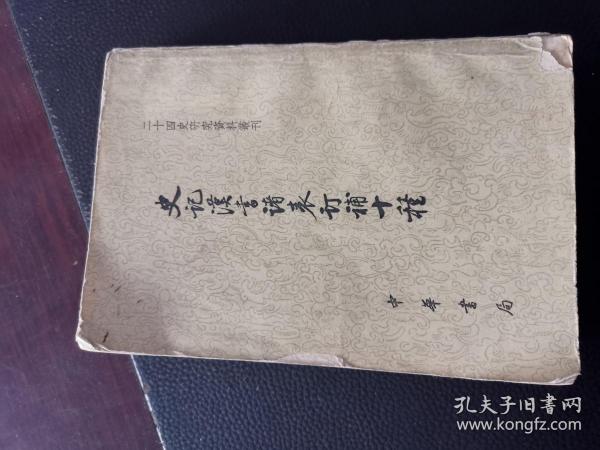 二十四史研究資料叢刊
史記漢書諸表訂補十種
中華書局
孔夫子旧書网
www.kongfz.com